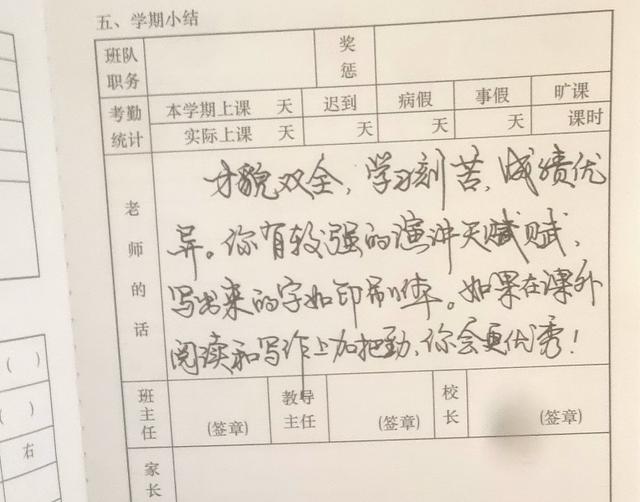 五、学期小结
班队职务 奖惩
考勤统计 本学期上课 天 迟到 病假 事假 旷课
实际上课 天 天 天 天 课时
老师的话
才貌双全,学习刻苦,成绩优
异。你有较强的演讲天赋,
写出来的字如印刷体。如果在课外
阅读和写作上加把劲,你会更优秀!
班主任 (签章) 教导主任 (签章) 校长 (签章)
家长
( )
( )
右